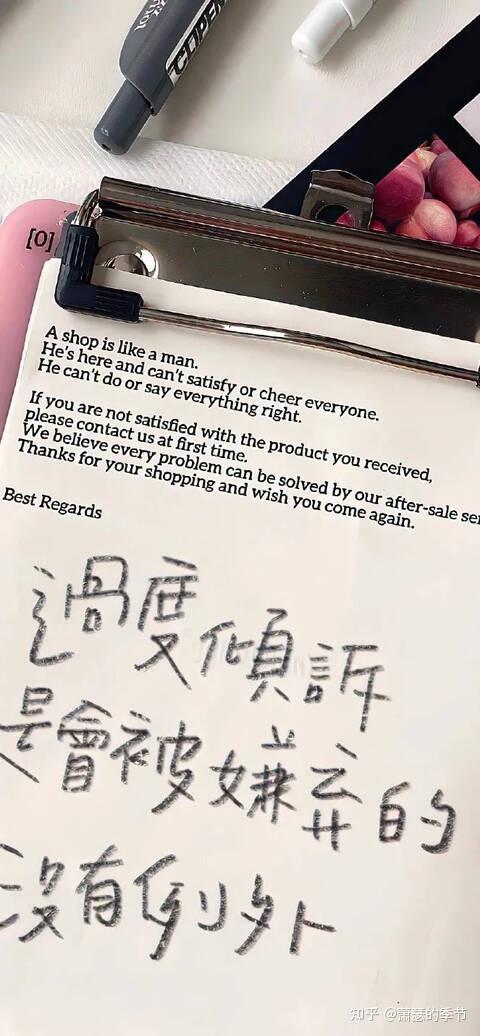 CLIPEN
[0]
A shop is like a man.
He's here and can't satisfy or cheer everyone.
He can't do or say everything right.
If you are not satisfied with the product you received,
please contact us at first time.
We believe every problem can be solved by our after-sale ser
Thanks for your shopping and wish you come again.
Best Regards
過度傾訴
是會被嫌弃的
没有例外
知乎 @萧瑟的季节